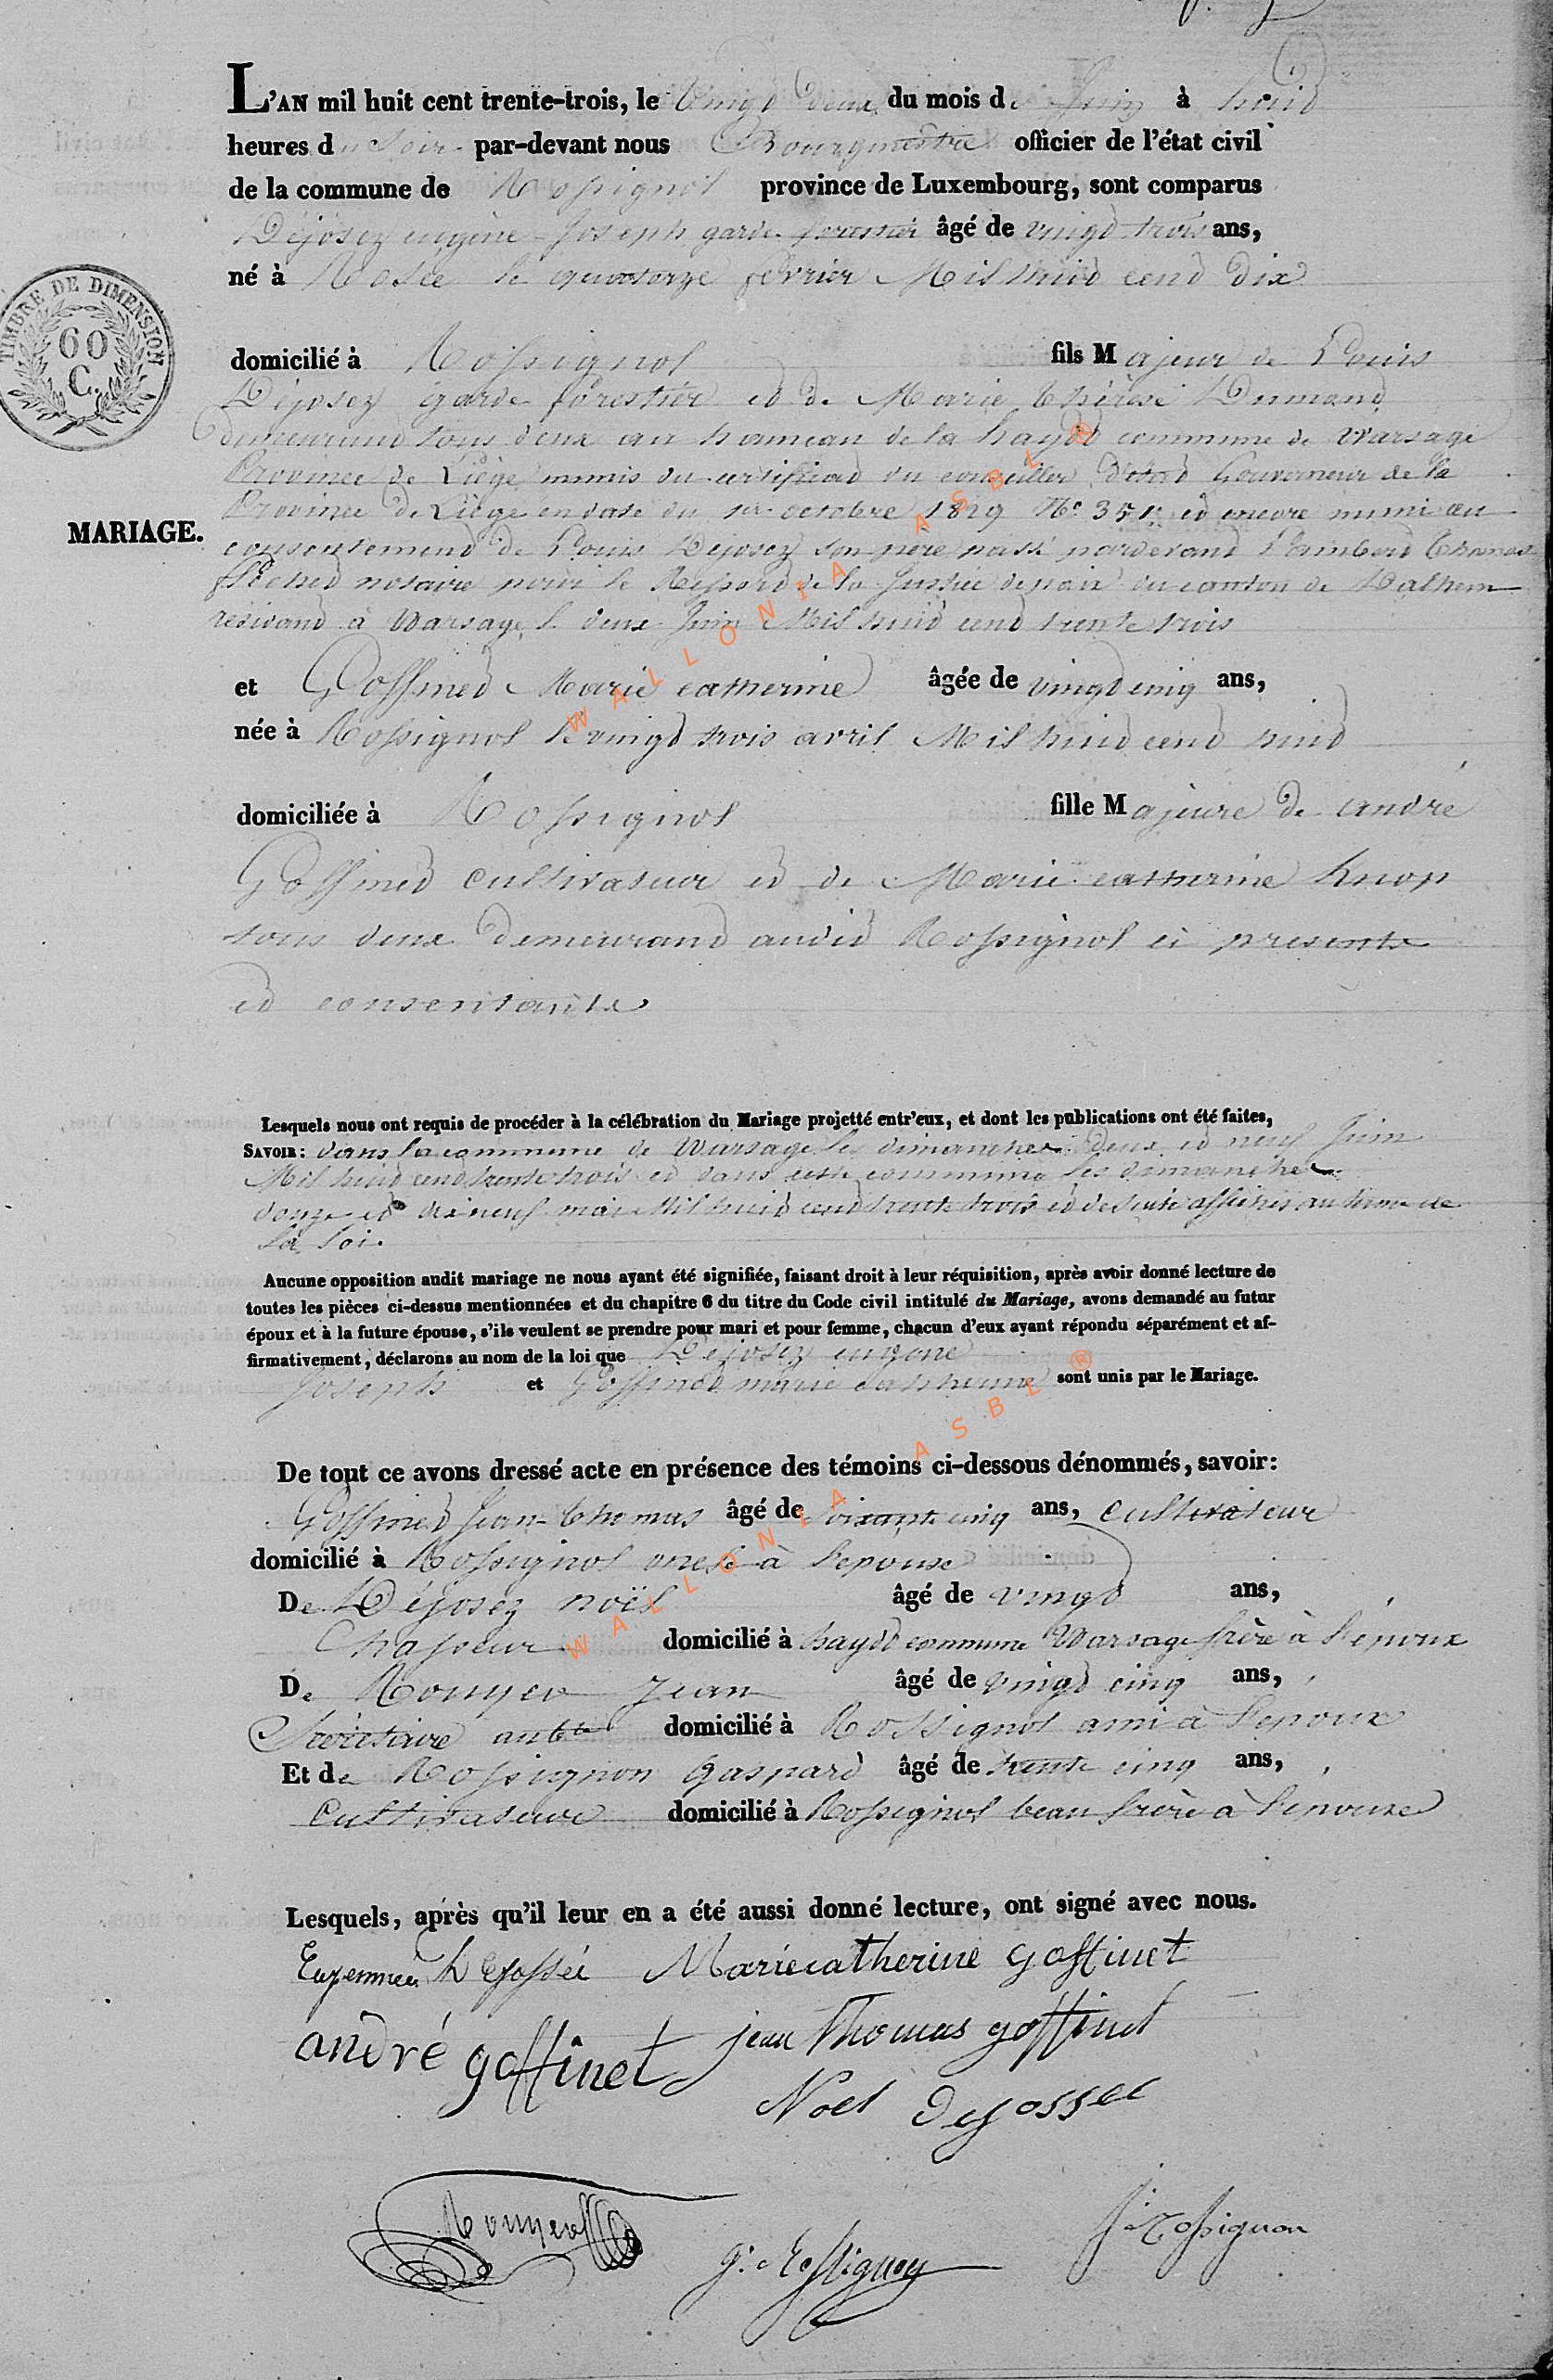 L'AN mil huit cent trente-trois, le vingt deux du mois de Juin à huit
heures du Soir par-devant nous Bourgmestre officier de l'état civil
de la commune de Rossignol province de Luxembourg, sont comparus
Déjosez eugène Joseph garde forestier âgé de vingt trois ans,
né à le quatorze fevrier Mil huit cent dix
TIMBRE DE DIMENSION
60
C.
domicilié à Rossignol fils Majeur de Louis
Dejosez garde forestier et de Marie thérèse
demeurant tous deux au hameau de la haydt commune de Warsage
Province de Liège munis du certificat du conseiller d'état Gouverneur de la
Province de Liège en date du 1er octobre 1829 No et encore muni du
MARIAGE.
consentement de Louis Dejosez son père passé pardevant Lambert thomas
notaire pour le Ressort de la Justice de paix du canton de Dalhem
résidant à Warsage le deux Juin Mil huit cent trente trois
et Goffinet Marie catherine âgée de vingt cinq ans,
née à Rossignol le vingt trois avril Mil huit cent huit
domiciliée à Rossignol fille Majeure de andré
Goffinet cultivateur et de Marie catherine Knop
tous deux demeurant audit Rossignol ci presents
et consentants
Lesquels nous ont requis de procéder à la célébration du Mariage projetté entr'eux, et dont les publications ont été faites,
SAVOIR: dans la commune de Warsage les dimanches deux et neuf Juin
Mil huit cent trente trois et dans cette commune les dimanches
douze et dix neuf mai Mil huit cent trente trois et de suite affichés au terme de
la loi.
Aucune opposition audit mariage ne nous ayant été signifiée, faisant droit à leur réquisition, après avoir donné lecture de
toutes les pièces ci-dessus mentionnées et du chapitre 6 du titre du Code civil intitulé du Mariage, avons demandé au futur
époux et à la future épouse, s'ils veulent se prendre pour mari et pour femme, chacun d'eux ayant répondu séparément et af-
firmativement, déclarons au nom de la loi que Dejosez eugene
Joseph et Goffinet marie catherine sont unis par le Mariage.
De tout ce avons dressé acte en présence des témoins ci-dessous dénommés, savoir:
Goffinet Jean-thomas âgé de soixante cinq ans, cultivateur
domicilié à Rossignol oncle à l'epouse
De Déjosez noël âgé de vingt ans,
Chasseur domicilié à haydt commune Warsage frère à l'époux
De Rouyer Jean âgé de vingt cinq ans,
Secrétaire domicilié à Rossignol ami à l'epoux
Et de Rossignon Gaspard âgé de trente cinq ans,
Cultivateur domicilié à Rossignol beau frère à l'epouse
Lesquels, après qu'il leur en a été aussi donné lecture, ont signé avec nous.
Mariecatherine goffinet
andré goffinet jean Thomas goffinet
Noel dejossee
Rouyer
g: Rossignon J: Rossignon
WALLONIA ASBL ®
WALLONIA ASBL ®